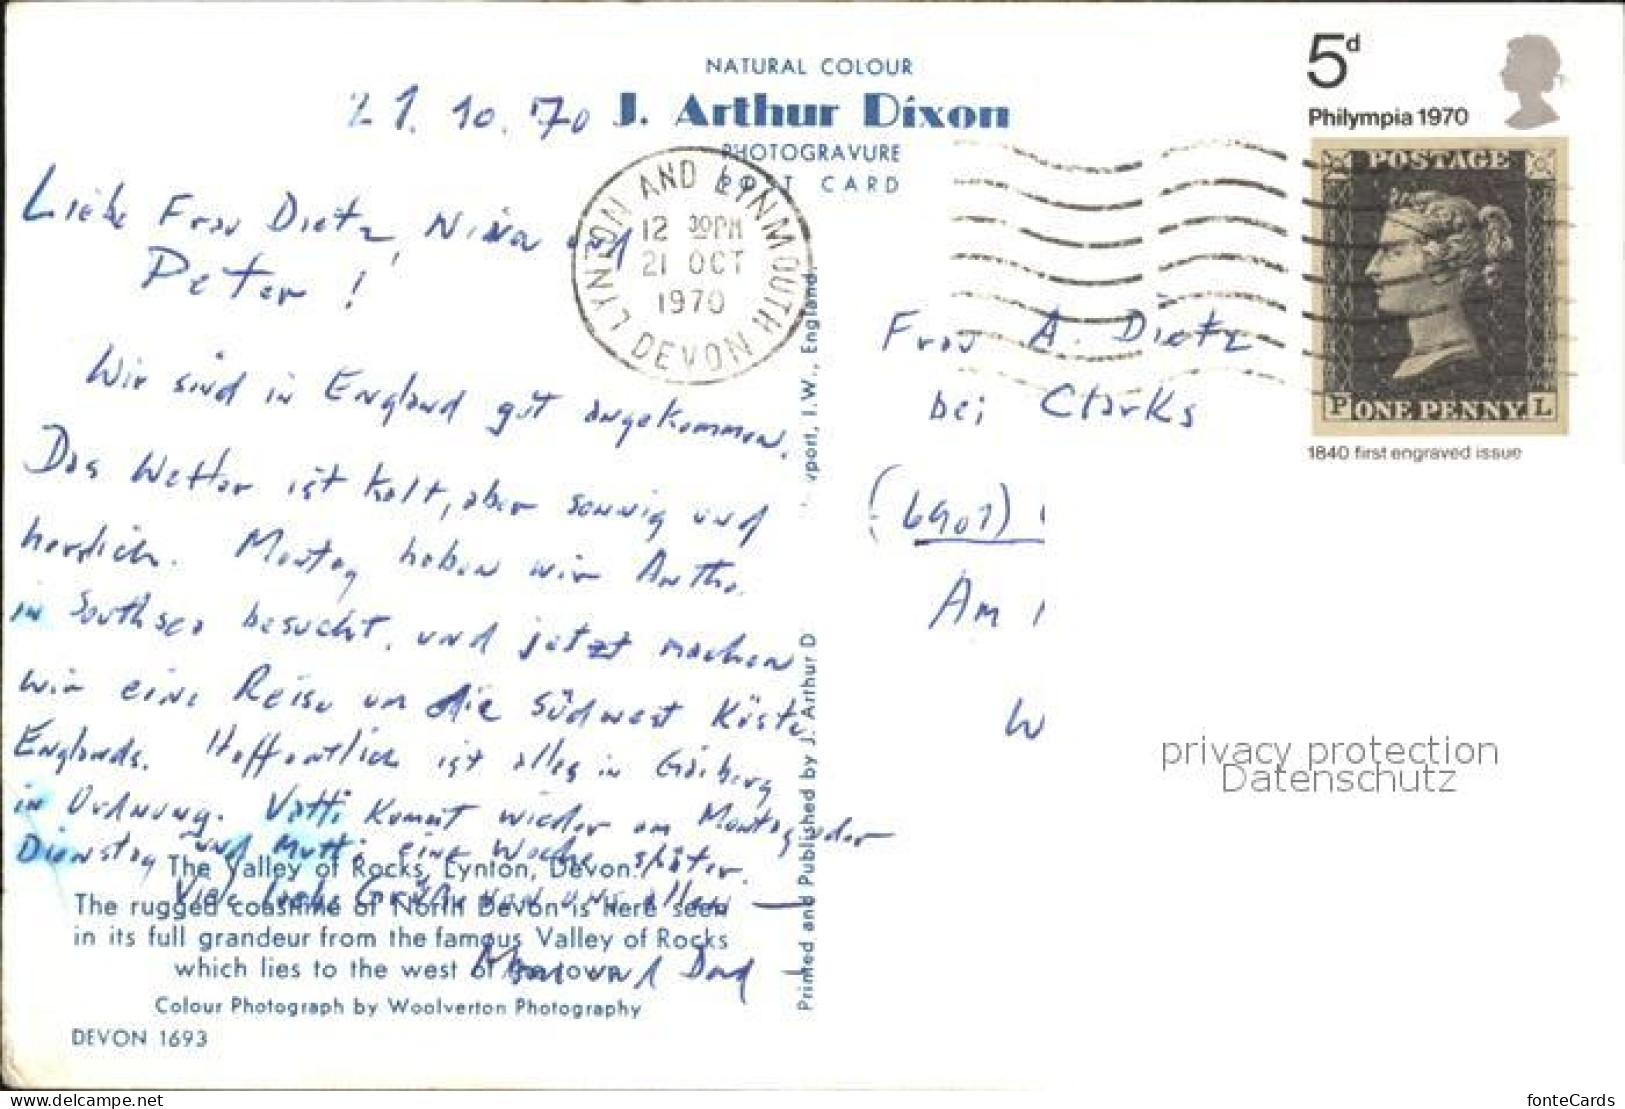 NATURAL COLOUR
J. Arthur Dixon
PHOTOGRAVURE
POST CARD
21. 10. 70
Liebe Frau Dietz, Nina und
Peter!
Wir sind in England gut angekommen.
Das Wetter ist kalt, aber sonnig und
herrlich. Montag haben wir
in Southsea besucht, und jetzt machen
wir eine Reise um die Südwest Küste
Englands. Hoffentlich ist alles in Gaiberg
in Ordnung. Vatti kommt wieder am Montag oder
Dienstag und Mutti eine Woche später.
Viele liebe Grüße von uns allen —
und Dad
The Valley of Rocks, Lynton, Devon.
The rugged coastline of North Devon is here seen
in its full grandeur from the famous Valley of Rocks
which lies to the west of the town.
Colour Photograph by Woolverton Photography
DEVON 1693
LYNTON AND LYNMOUTH DEVON
12 30PM
21 OCT
1970
Printed and Published by J. Arthur D
wport, I.W., England.
Frau A. Dietz
bei Clarks
(6901)
Am
W
5d
Philympia 1970
POSTAGE
P ONE PENNY. L
1840 first engraved issue
privacy protection
Datenschutz
www.delcampe.net
fonteCards